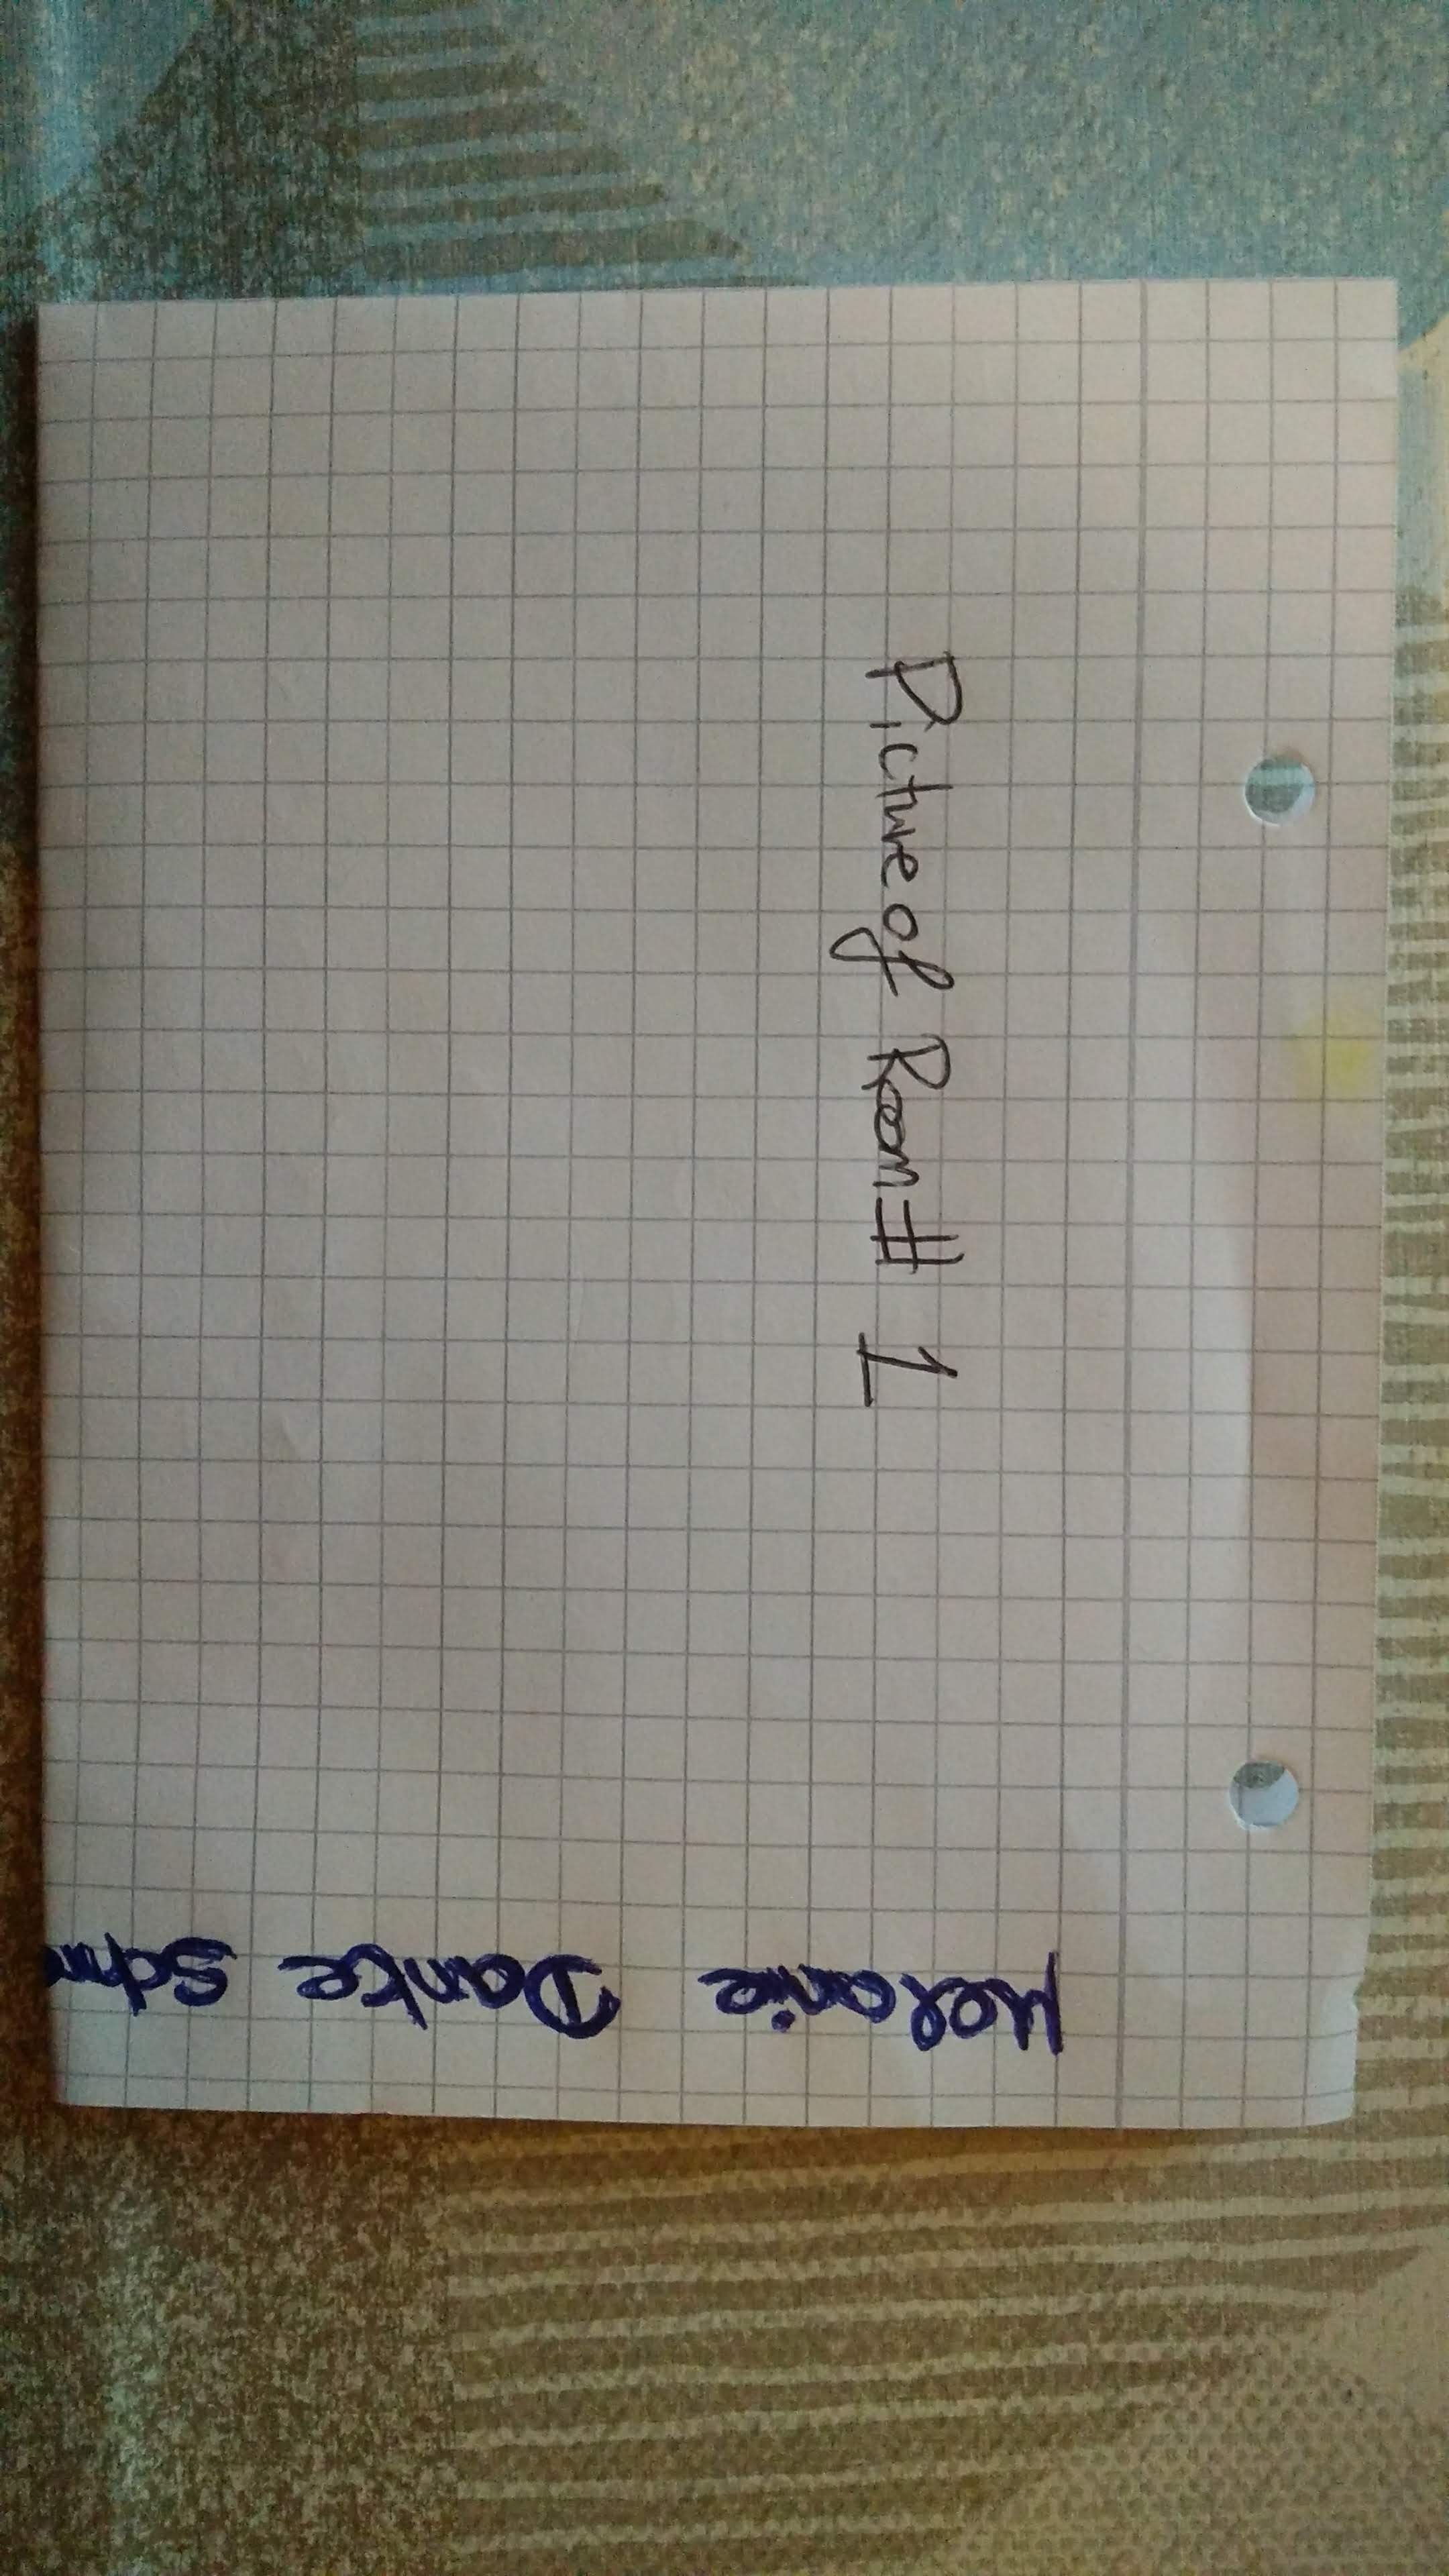 Picture of Room # 1
Melanie Dante Schm